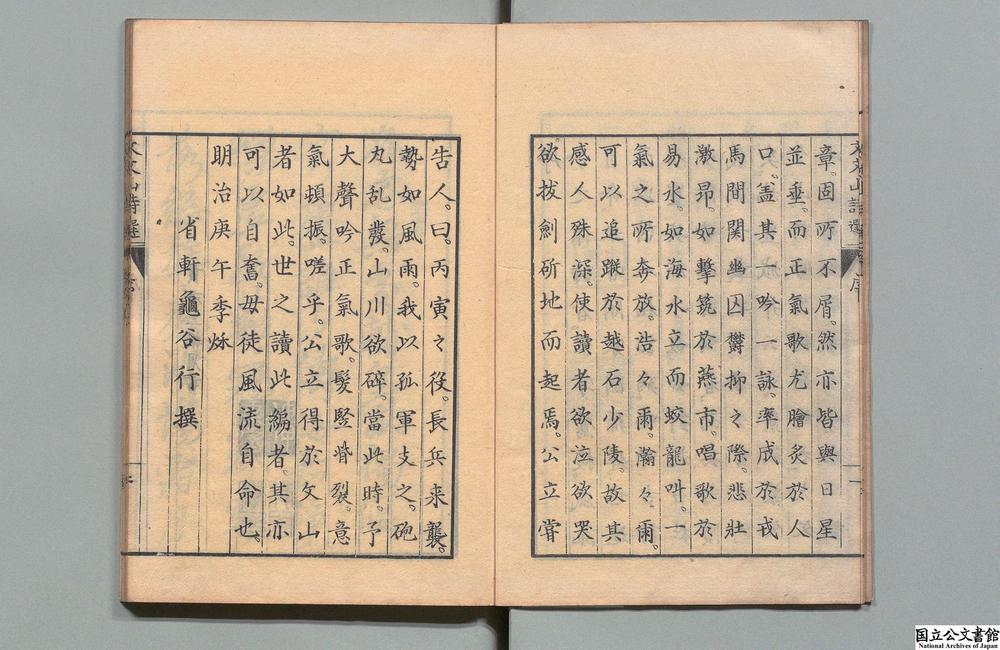 章。固所不屑。然亦皆與日星
並垂。而正氣歌尤膾炙於人
口。盖其一吟一詠。率成於戎
馬間関幽囚欝抑之際。悲壯
激昂。如擊筑於燕市。唱歌於
易水。如海水立而蛟龍叫。一
氣之所奔放。浩々爾。瀚々爾。
可以追蹤於越石少陵。故其
感人殊深。使讀者欲泣欲哭
欲拔劍斫地而起焉。公立嘗
告人。曰。丙寅之役。長兵来襲。
勢如風雨。我以孤軍支之。砲
丸乱發。山川欲碎。當此時。予
大聲吟正氣歌。髮竪眥裂。意
氣頓振。嗟乎。公立得於文山
者如此。世之讀此編者。其亦
可以自奮。毋徒風流自命也。
明治庚午季秌
省軒龜谷行撰
文文山詩選
序
国立公文書館
National Archives of Japan